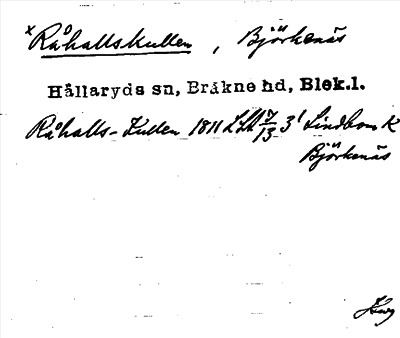 x Råhallskullen, Björkenäs
Hällaryds sn, Bräkne hd, Blek.l.
Råhalls-Kullen 1811 LSA 7/13 3¹ Lindbom K
Björkenäs